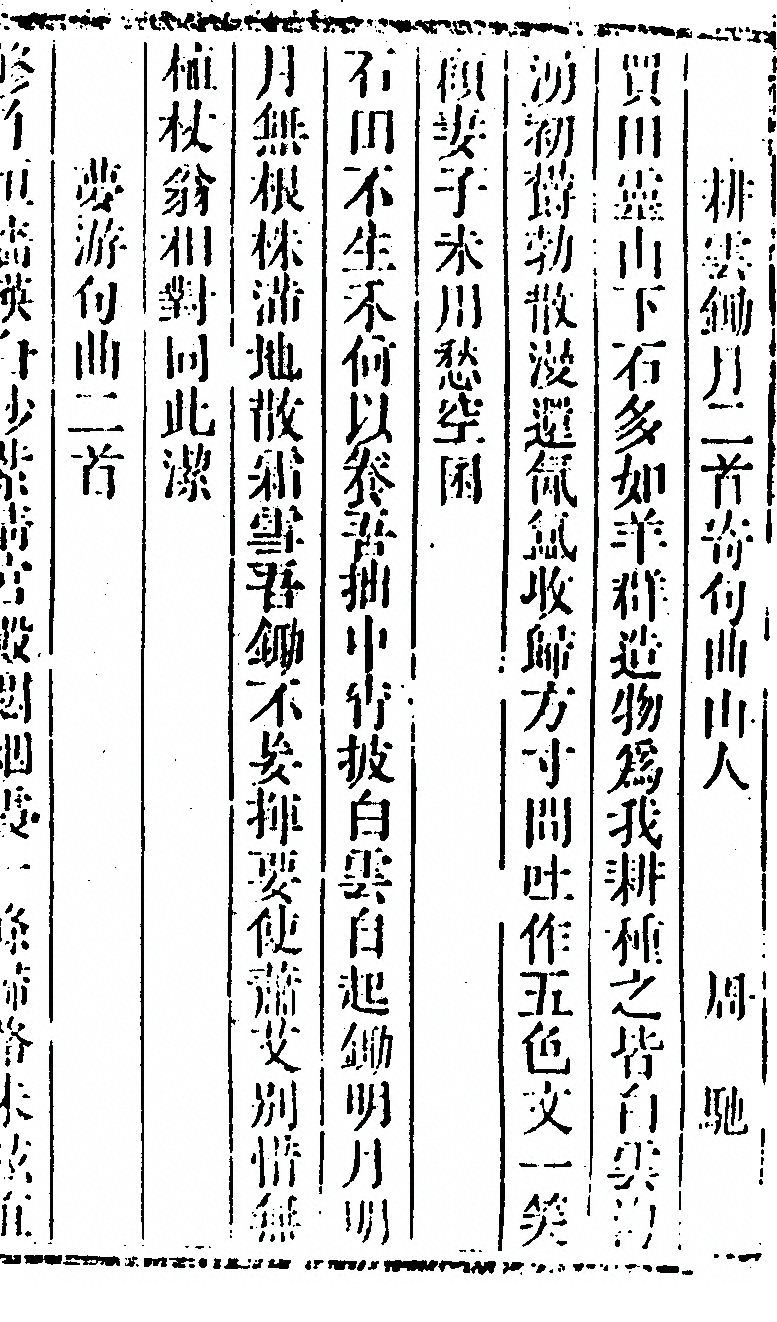 耕雲鋤月二首寄句曲山人　周馳
買田靈山下石多如羊群造物爲我耕種之皆白雲
初欝勃散漫還氤氳收歸方寸間吐作五色文一笑
顧妻子未用愁空囷
石田不生禾何以養吾拙中宵披白雲自起鋤明月明
月無根株滿地散霜雪吾鋤不妄揮要使蕭艾别惜無
植杖翁相對同此潔
夢游句曲二首